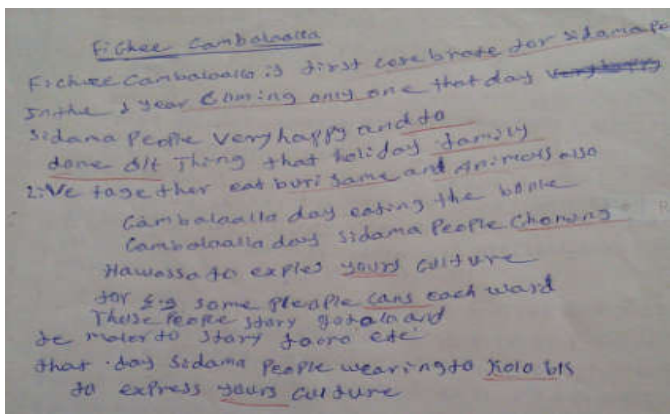 Fichee Cambalaalla
Fichee Cambalaalla is first cerebrate for sidama Pe
In the 1 year Coming only one that day very happy
Sidama People very happy and to
done d/t Thing that holiday family
2:Ve together eat buri same and Animals also
Cambalaalla day eating the bonke
Cambalaalla day sidama People Choming
Hawassa to exples yours culture
for E.g some pleaple cans each ward
These People story gotala and
story faaro etc
that day Sidama People wearing to Kolo bis
to express yours culture